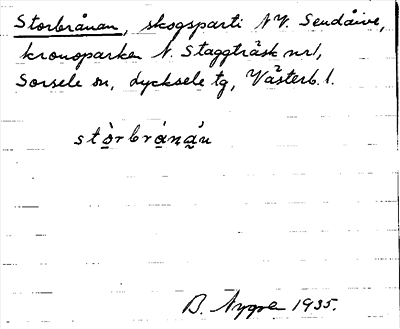 Storbrånan, skogsparti NV. Sendåive,
kronoparken N. Staggträsk nr 1,
Sorsele sn, Lycksele tg, Västerb. l.
stò̱rbrá̱na̱̓n
B. Nygre 1935.